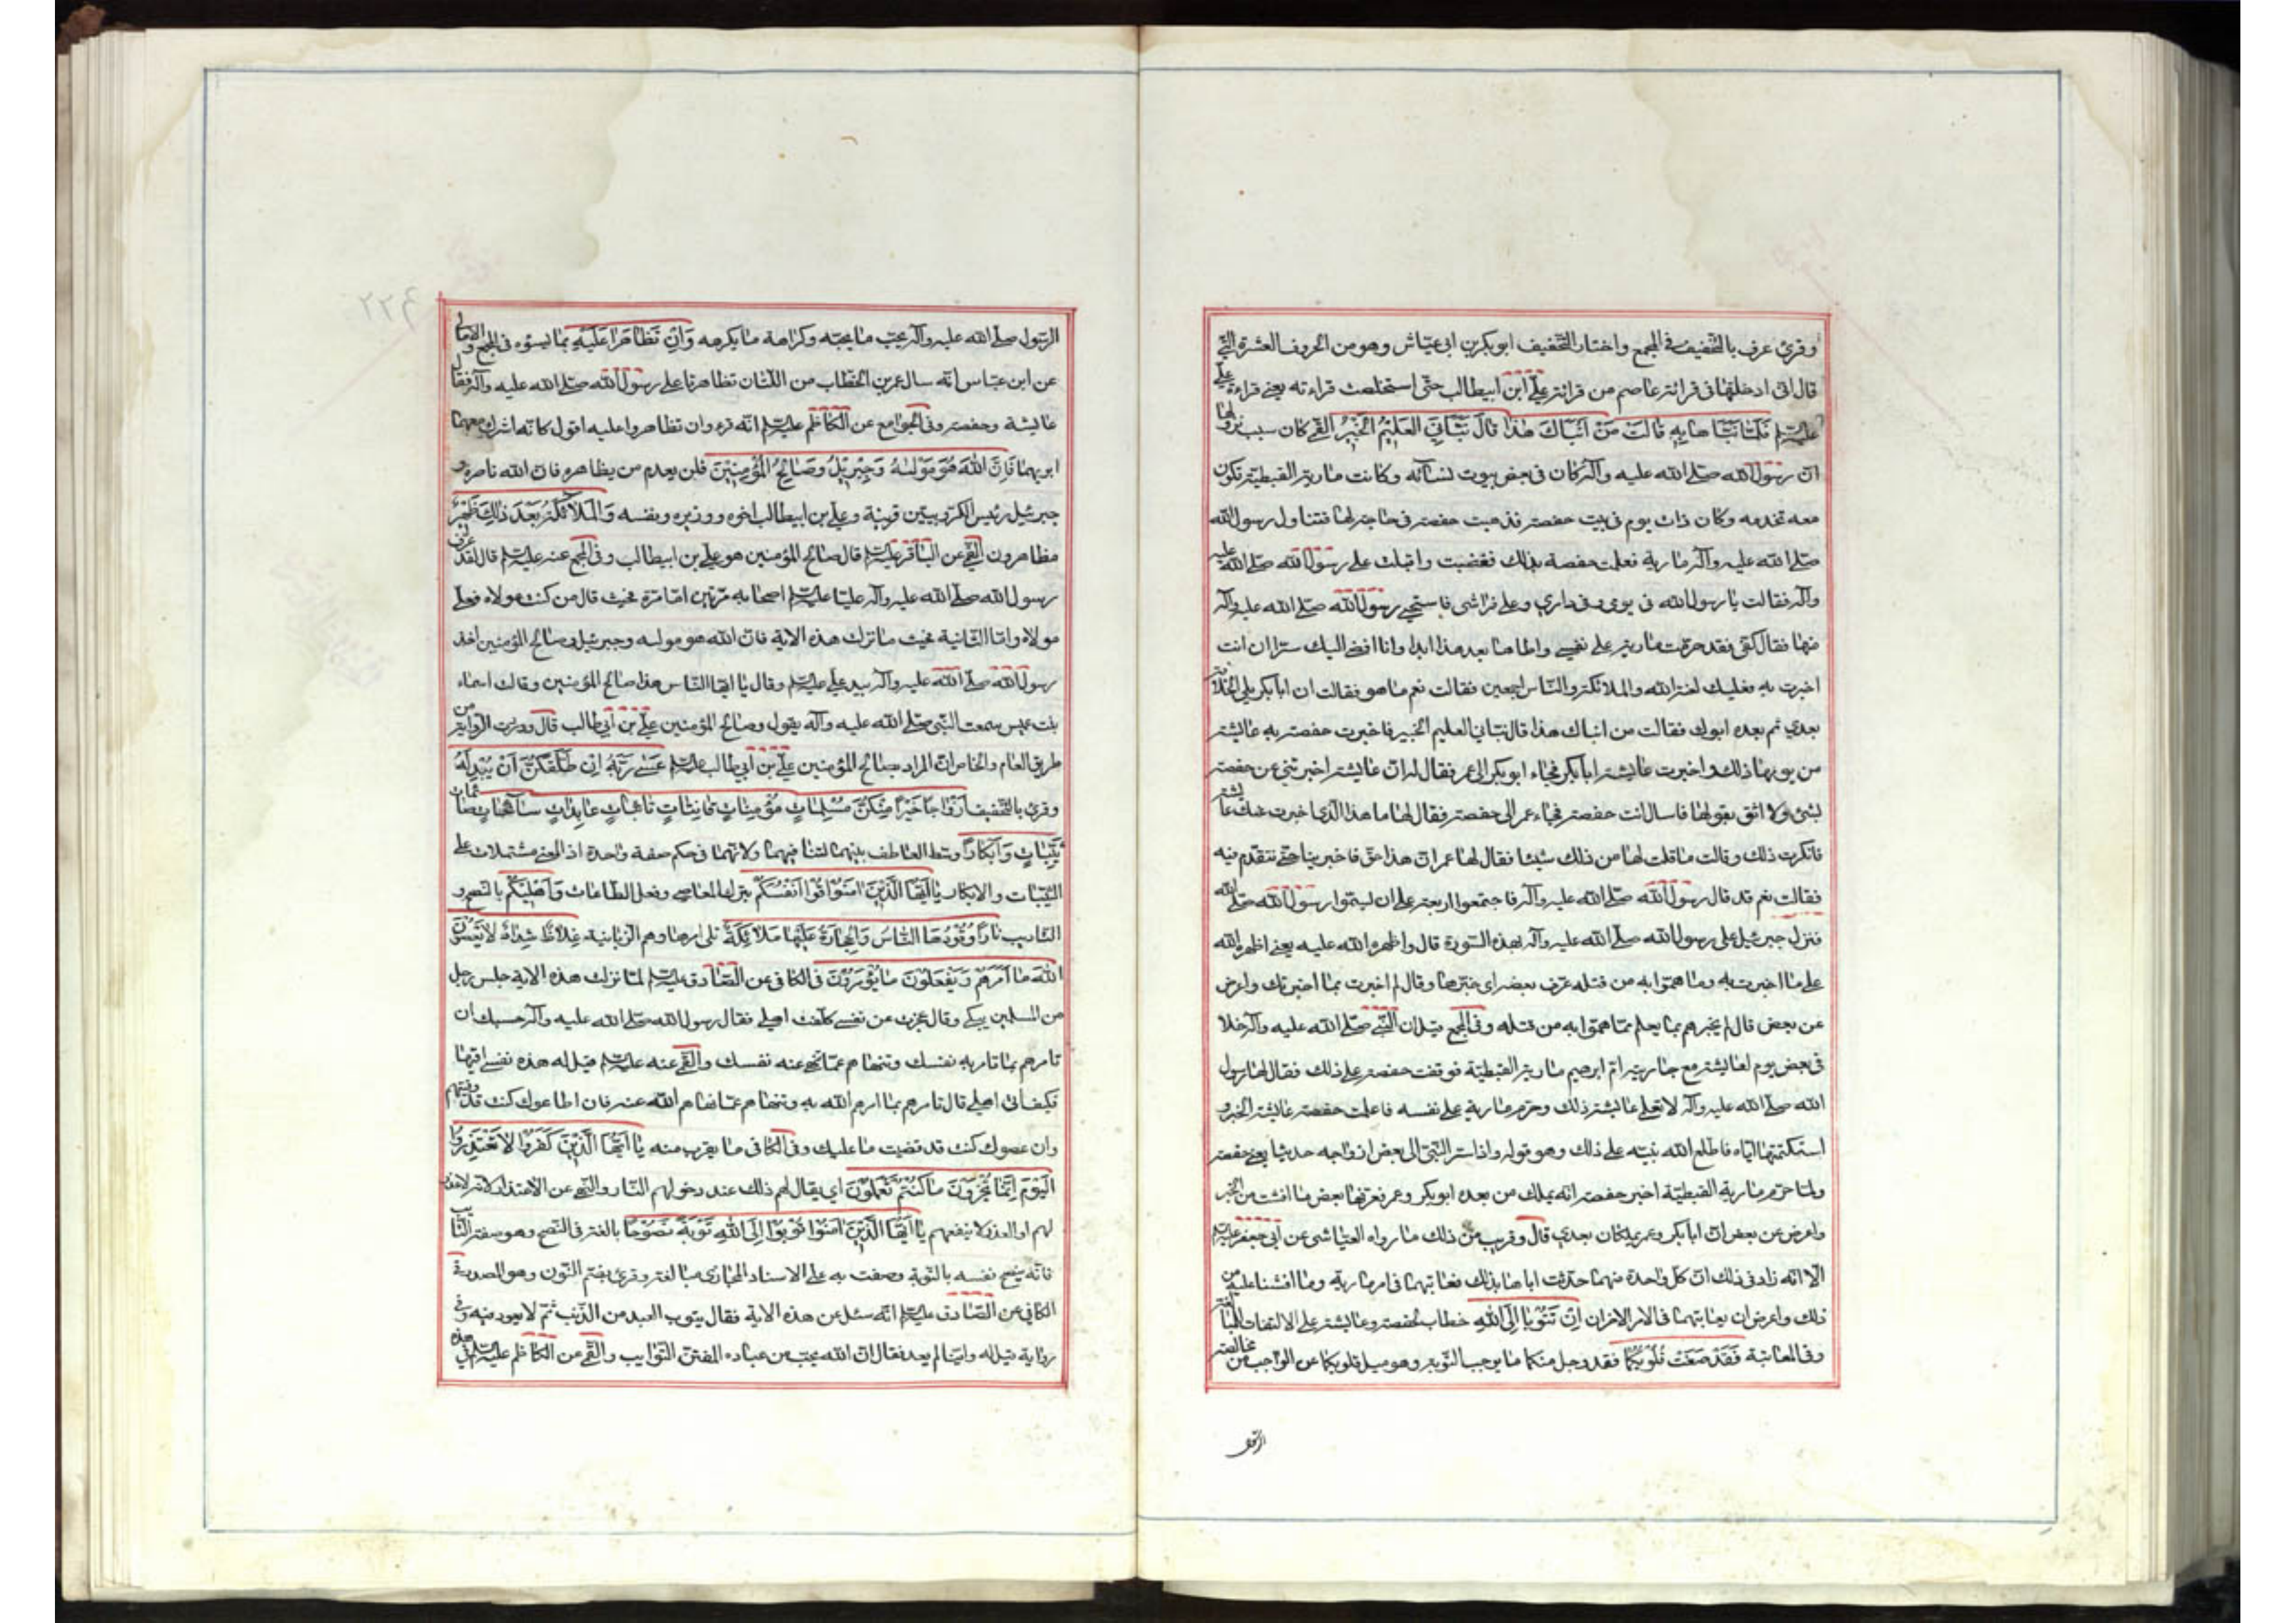 وقرئ عرف بالتخفيف في المجمع واختار التخفيف ابو بكر بن ابي عياش وهو من الحروف العشرة التي
قال اني ادخلتها في قرائة عاصم من قرائة علي ابن ابيطالب حتى استخلصت قراءته يعني قراءة علي
عليه السلم فَلَمّا نَبَّاَهَا بِهِ قالَتْ مَنْ اَنْبَاَكَ هٰذا قالَ نَبَّاَنِيَ العَليمُ الْخَبيرُ القمي كان سبب نزولها
ان رسول الله صلى الله عليه وآله كان في بعض بيوت نسائه وكانت مارية القبطية تكون
معه تخدمه وكان ذات يوم في بيت حفصة فذهبت حفصة في حاجة لها فتناول رسول الله
صلى الله عليه وآله مارية فعلمت حفصة بذلك فغضبت واقبلت على رسول الله صلى الله عليه
وآله فقالت يا رسول الله في يومي وفي داري وعلى فراشي فاستحيى رسول الله صلى الله عليه وآله
منها فقال كفى فقد حرمت مارية على نفسي ولا اطاها بعد هذا ابدا وانا افضي اليك سرا ان انت
اخبرت به فعليك لعنة الله والملائكة والناس اجمعين فقالت نعم ما هو فقالت ان ابا بكر يلي الخلافة
بعدي ثم بعده ابوك فقالت من انباك هذا قال نباني العليم الخبير فاخبرت حفصة به عايشة
من يومها ذلك واخبرت عايشة ابا بكر فجاء ابو بكر الى عمر فقال له ان عايشة اخبرتني عن حفصة
بشئ ولا اثق بقولها فاسال انت حفصة فجاء عمر الى حفصة فقال لها ما هذا الذي اخبرت عنك عايشة
فانكرت ذلك وقالت ما قلت لها من ذلك شيئا فقال لها عمر ان هذا حق فاخبرينا حتى نتقدم فيه
فقالت نعم قد قال رسول الله صلى الله عليه وآله فاجتمعوا اربعة على ان يسموا رسول الله صلى الله
فنزل جبرئيل على رسول الله صلى الله عليه وآله بهذه السورة قال واظهره الله عليه يعني اظهره الله
على ما اخبرت به وما هموا به من قتله عرف بعضه اي خبرها وقال لم اخبرت بما اخبرتك واعرض
عن بعض قال لم يخبرهم بما يعلم مما هموا به من قتله وفي المجمع قيل ان النبي صلى الله عليه وآله خلا
في بعض يوم لعايشة مع جاريته ام ابرهيم مارية القبطية فوقفت حفصة على ذلك فقال لها رسول
الله صلى الله عليه وآله لا تعلمي عايشة ذلك وحرم مارية على نفسه فاعلمت حفصة عايشة الخبر و
استكتمتها اياه فاطلع الله نبيه على ذلك وهو قوله واذ اسر النبي الى بعض ازواجه حديثا يعني حفصة
ولما حرم مارية القبطية اخبر حفصة انه يملك من بعده ابو بكر وعمر فعرفها بعض ما افشت من الخبر
واعرض عن بعض ان ابا بكر وعمر يملكان بعدي قال وقريب من ذلك ما رواه العياشي عن ابي جعفر عليه السلم
الا انه زاد في ذلك ان كل واحدة منهما حدثت اباها بذلك فعاتبهما في امر مارية وما افشتا عليه من
ذلك واعرض ان يعاتبهما في الامر الاخر اِنْ تَتُوبا اِلَى اللهِ خطاب لحفصة وعايشة على الالتفات للمبالغة
وفي المعاتبة فَقَدْ صَغَتْ قُلُوبُكُما فقد وجد منكما ما يوجب التوبة وهو ميل قلوبكما عن الواجب من مخالصة
الرسول
الرسول صلى الله عليه وآله بحب ما يحبه وكراهة ما يكرهه وَاِنْ تَظاهَرا عَلَيْهِ بما يسؤه في المجمع والامالي
عن ابن عباس انه سال عمر بن الخطاب من اللتان تظاهرتا على رسول الله صلى الله عليه وآله فقال
عايشة وحفصة وفي الجوامع عن الكاظم عليه السلم انه قرء وان تظاهروا عليه اقول كانه اشرك معهما
ابويهما فَاِنَّ اللهَ هُوَ مَوْلٰيهُ وَجِبْريلُ وَصالِحُ الْمُؤْمِنينَ فلن يعدم من يظاهره فان الله ناصره و
جبرئيل رئيس الكروبيين قرينه وعلي بن ابيطالب اخوه ووزيره ونفسه وَالْمَلائِكَةُ بَعْدَ ذٰلِكَ ظَهيرٌ
مظاهرون القمي عن الباقر عليه السلم قال صالح المؤمنين هو علي بن ابيطالب وفي المجمع عنه عليه السلم قال لقد عرف
رسول الله صلى الله عليه وآله عليا عليه السلم اصحابه مرتين اما مرة فحيث قال من كنت مولاه فعلي
مولاه واما الثانية فحيث ما نزلت هذه الاية فان الله هو موليه وجبرئيل وصالح المؤمنين اخذ
رسول الله صلى الله عليه وآله بيد علي عليه السلم وقال يا ايها الناس هذا صالح المؤمنين وقالت اسماء
بنت عميس سمعت النبي صلى الله عليه وآله يقول وصالح المؤمنين علي بن ابي طالب قال ووردت الرواية من
طريق العام والخاص ان المراد بصالح المؤمنين علي بن ابي طالب عليه السلم عَسٰى رَبُّهُ اِنْ طَلَّقَكُنَّ اَنْ يُبْدِلَهُ
وقرئ بالتخفيف اَزْواجًا خَيْرًا مِنْكُنَّ مُسْلِماتٍ مُؤْمِناتٍ قانِتاتٍ تائِباتٍ عابِداتٍ سائِحاتٍ صائمات
ثَيِّباتٍ وَاَبْكارًا وسط العاطف بينهما لتنافيهما ولانهما في حكم صفة واحدة اذ المعنى مشتملات على
الثيبات والابكار يا اَيُّهَا الَّذينَ امَنُوا قُوا اَنْفُسَكُمْ بترك المعاصي وفعل الطاعات وَاَهْليكُمْ بالنصح و
التاديب نارًا وَقُودُهَا النّاسُ وَالْحِجارَةُ عَلَيْها مَلائِكَةٌ تلي امرها وهم الزبانية غِلاظٌ شِدادٌ لا يَعْصُونَ
اللهَ ما اَمَرَهُمْ وَيَفْعَلُونَ ما يُؤْمَرُونَ في الكافي عن الصادق عليه السلم لما نزلت هذه الاية جلس رجل
من المسلمين يبكي وقال عجزت عن نفسي كلفت اهلي فقال رسول الله صلى الله عليه وآله حسبك ان
تامرهم بما تامر به نفسك وتنهاهم عما تنهى عنه نفسك والقمي عنه عليه السلم قيل له هذه نفسي اقيها
فكيف اقي اهلي قال تامرهم بما امرهم الله به وتنهاهم عما نهاهم الله عنه فان اطاعوك كنت قد وقيتهم
وان عصوك كنت قد قضيت ما عليك وفي الكافي ما يقرب منه يا اَيُّهَا الَّذينَ كَفَرُوا لا تَعْتَذِرُوا
الْيَوْمَ اِنَّما تُجْزَوْنَ ما كُنْتُمْ تَعْمَلُونَ اي يقال لهم ذلك عند دخولهم النار والنهي عن الاعتذار لانه لا عذر
لهم او العذر لا ينفعهم يا اَيُّهَا الَّذينَ امَنُوا تُوبُوا اِلَى اللهِ تَوْبَةً نَصُوحًا بالغة في النصح وهو صفة التائب
فانه ينصح نفسه بالتوبة وصفت به على الاسناد المجازي مبالغة وقرئ بضم النون وهو المصدر في
الكافي عن الصادق عليه السلم انه سئل عن هذه الاية فقال يتوب العبد من الذنب ثم لا يعود فيه وفي
رواية قيل له واينا لم يعد فقال ان الله يحب من عباده المفتن التواب والقمي عن الكاظم عليه السلم في هذه